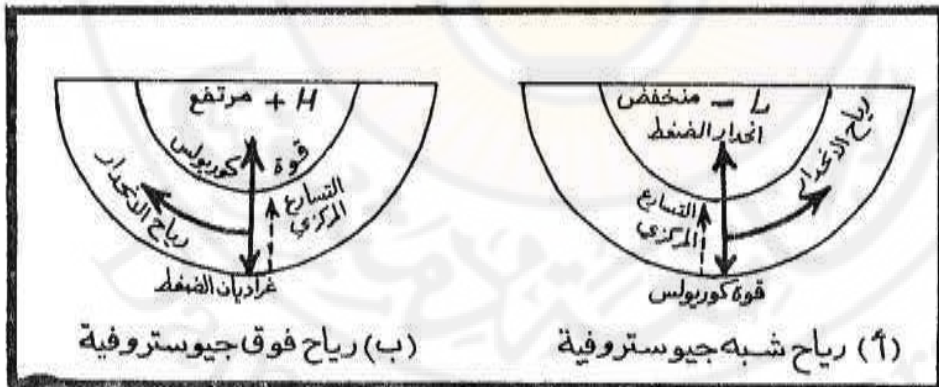 L - منخفض
انحدار الضغط
رياح الانحدار
التسارع
المركزي
قوة كوريولس
(أ) رياح شبه جيوستروفية
H + مرتفع
قوة كوريولس
التسارع
المركزي
رياح الانحدار
غراديان الضغط
(ب) رياح فوق جيوستروفية